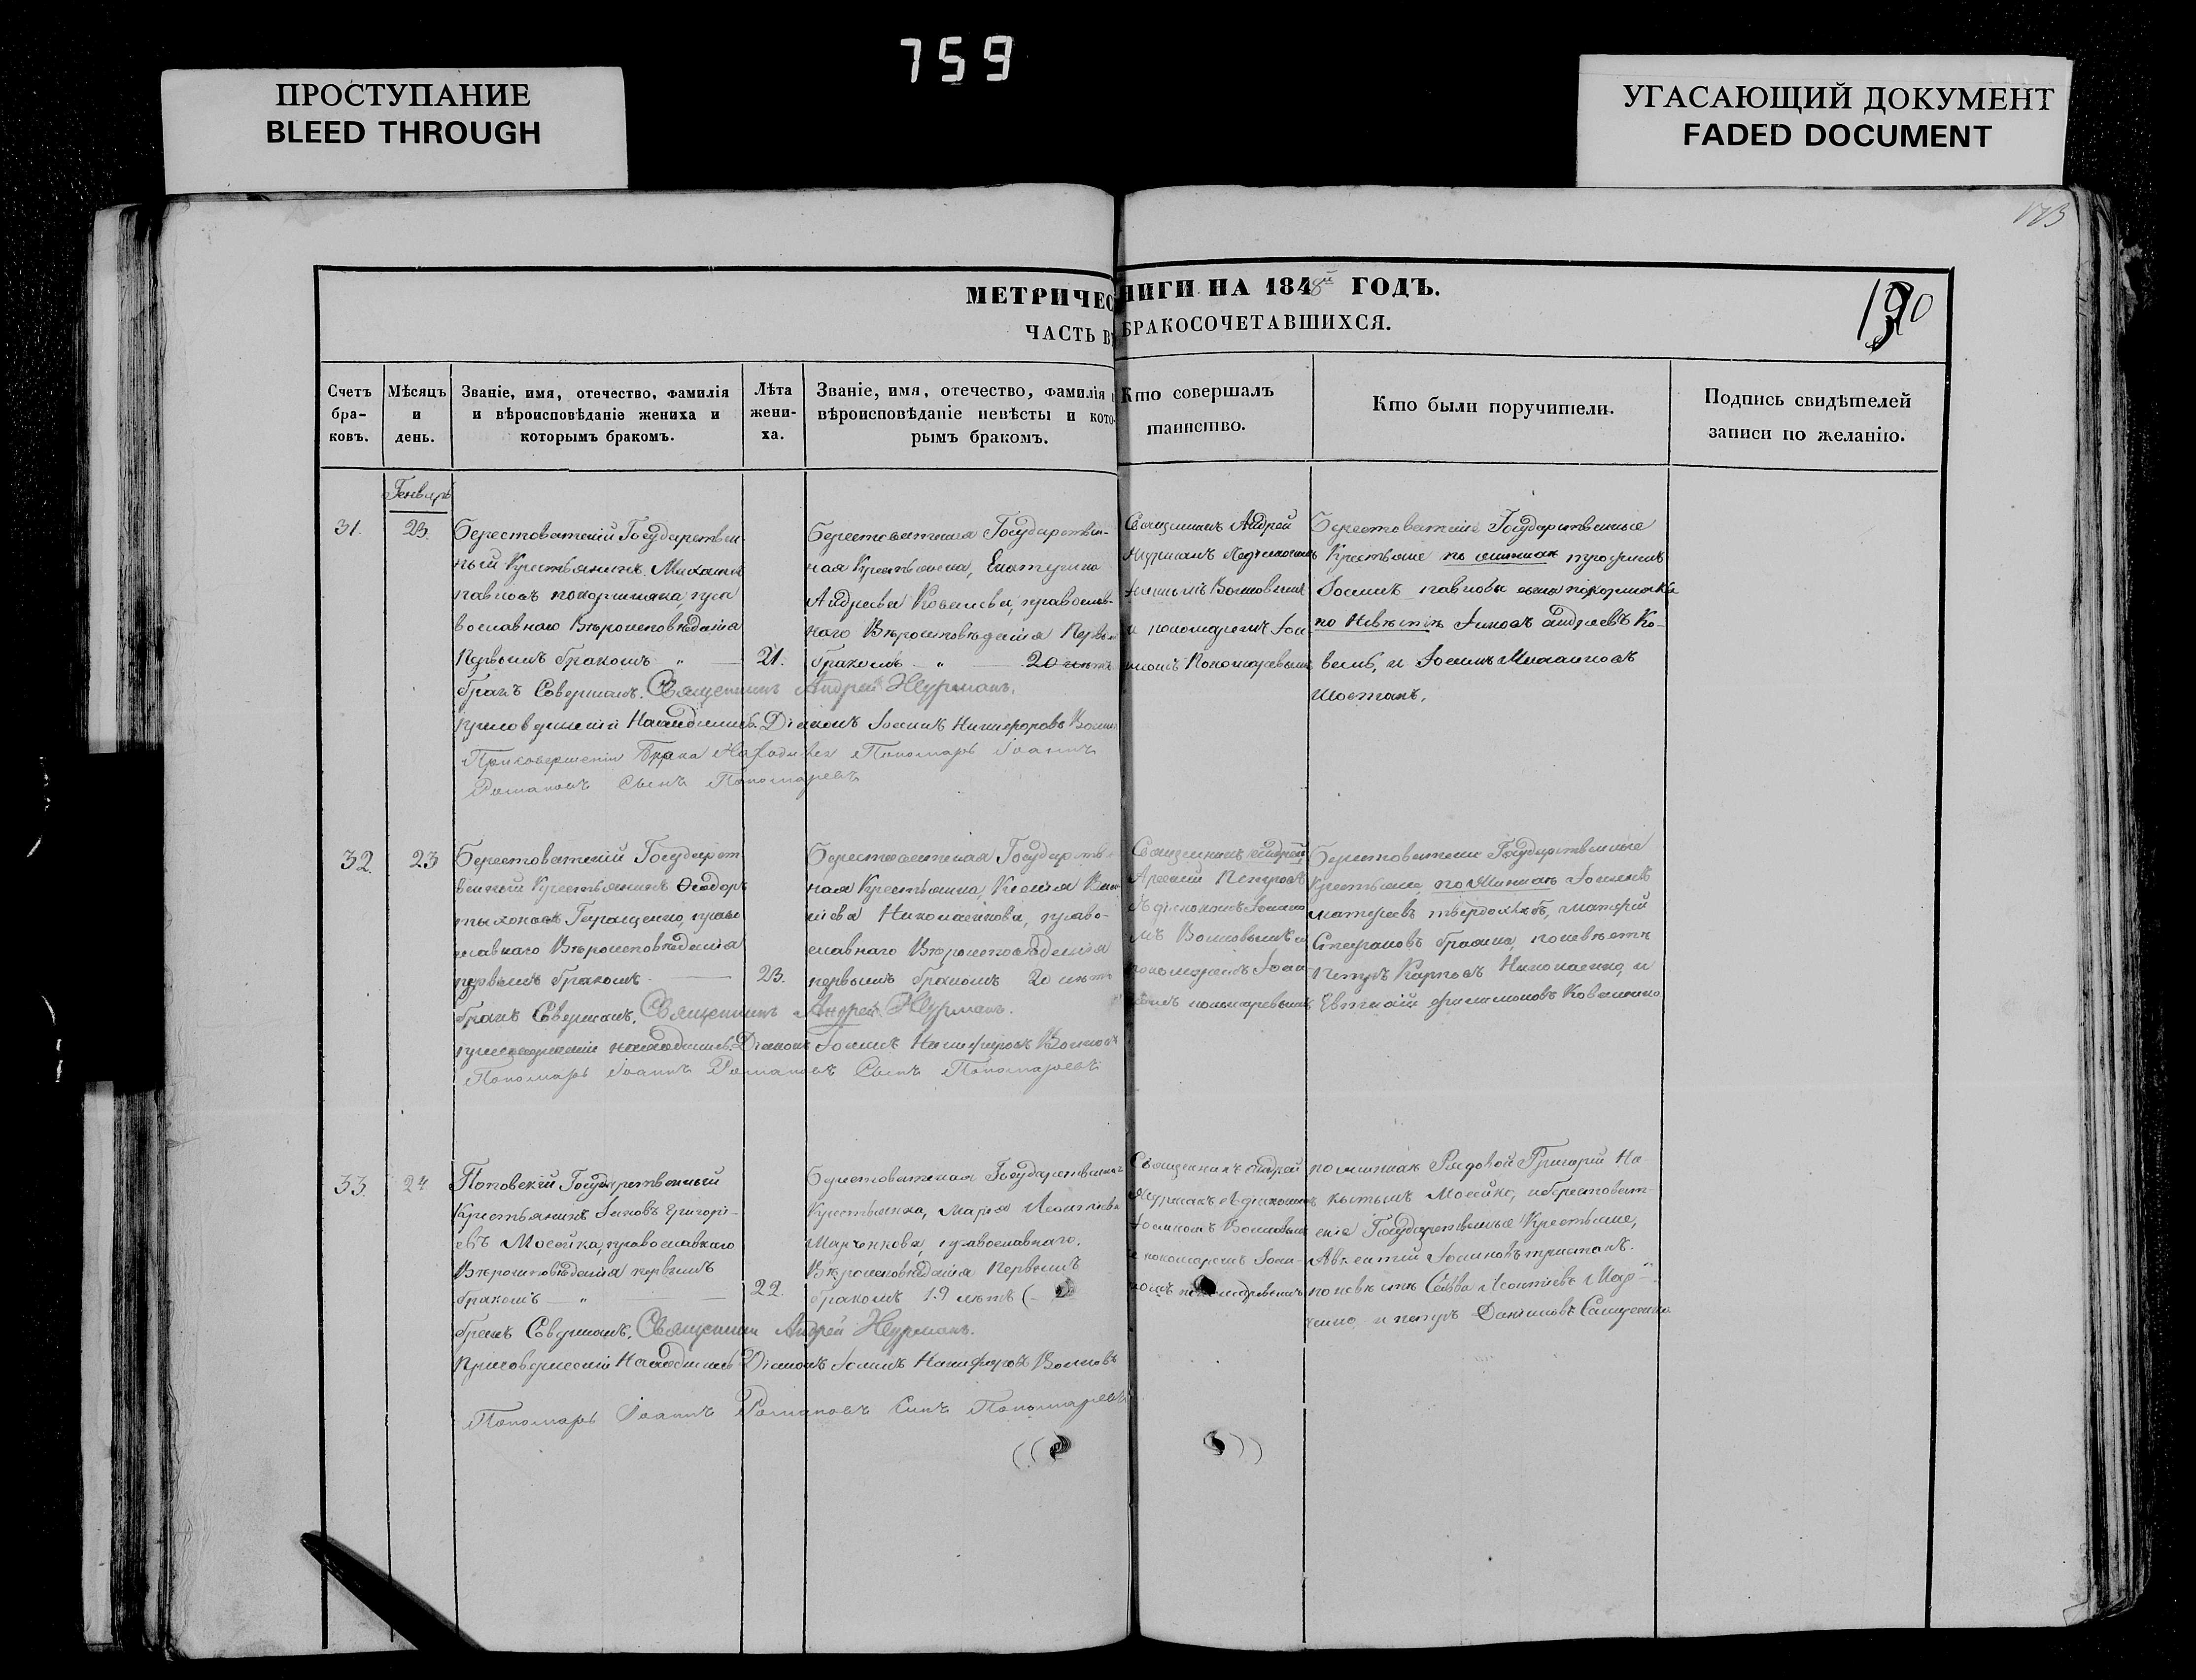 759
ПРОСТУПАНИЕ
BLEED THROUGH
УГАСАЮЩИЙ ДОКУМЕНТ
FADED DOCUMENT
МЕТРИЧЕС НИГИ НА 1848й ГОДЪ.
ЧАСТЬ В БРАКОСОЧЕТАВШИХСЯ.
190
Счетъ
бра-
ковъ.
Мѣсяцъ
и
день.
Званіе, имя, отечество, фамилія
и вѣроисповѣданіе жениха и
которымъ бракомъ.
Лѣта
жени-
ха.
Званіе, имя, отечество, фамилія
вѣроисповѣданіе невѣсты и кото-
рымъ бракомъ.
Кто совершалъ
таинство.
Кто были поручители.
Подпись свидѣтелей
записи по желанію.
Генварь
31.
23.
Берестоватскій Государствен-
ный Крестьянинъ Михаилъ
павловъ покормяка, пра
вославнаго Вѣроисповѣданія
Первымъ бракомъ „
21.
Берестоватская Государствен-
ная Крестьянка, Екатерина
Андреева Ковалева, православ-
наго Вѣроисповѣданія Первым
бракомъ „ 20 лѣтъ
Священникъ Андрей
Журманъ съ діакономъ
Іоанномъ Волковымъ
и пономаремъ Іоан
номъ Пономаревымъ
Берестоватскіе Государственные
Крестьяне по женихѣ трофимъ
Іоаннъ павловы сына покормяка
по Невѣстѣ Яковъ андреевъ Ко-
валь, и Іоаннъ Михайловъ
Шостакъ.
бракъ Совершалъ Священникъ Андрей Журманъ.
присовершеніи Находились Діаконъ Іоаннъ Никифоровъ Волков
Присовершеніи Брака Находился Пономарь Іоаннъ
Романовъ Сынъ Пономаревъ
32.
23
Берестоватскій Государст
венный Крестьянинъ Ѳеодоръ
тихоновъ Геращенко, право
славнаго Вѣроисповѣданія
первымъ бракомъ
23.
Берестоватская Государств
ная Крестьянка, Ксенія
Николаенкова, право-
славнаго Вѣроисповѣданія
первымъ бракомъ 20 лѣтъ
Священникъ андрей
съ діакономъ Іоанно
мъ Волковымъ и
пономаремъ Іоан
номъ пономаревымъ
Берестоватскіе Государственные
Крестьяне, по женихѣ Іоаннъ
матвеевъ твердохлѣбъ, матфей
Стефановъ бражка, по невѣстѣ
петръ Карповъ Николаенко, и
Евтихій филимоновъ Коваленко
бракъ Совершалъ Священникъ Андрей Журманъ.
присовершеніи находились Діаконъ Іоаннъ Никифоровъ Волковъ
Пономарь Іоаннъ Романовъ Сынъ Пономаревъ
33.
24
Поповскій Государственный
Крестьянинъ Яковъ григорі-
евъ Мосейко, православнаго
Вѣроисповѣданія первымъ
бракомъ „
22.
Берестоватская Государственная
Крестьянка, Марія Леонтіева
Марченкова, православнаго.
Вѣроисповѣданія Первымъ
бракомъ 19 лѣтъ
Священникъ андрей
Журманъ съ діакономъ
Іоанномъ Волковымъ
и пономаремъ Іоан-
номъ пономаревымъ
по женихѣ Рядовой Григорій
Мосейко, и берестоват-
скіе Государственные Крестьяне,
Авксентій Іоанновъ
по невѣстѣ Савва Леонтіевъ Мар-
ченко, и петръ Даниловъ
бракъ Совершалъ, Священникъ Андрей Журманъ.
Присовершеніи Находились Діаконъ Іоаннъ Никифоровъ Волковъ
Пономарь Іоаннъ Романовъ Сынъ Пономаревъ